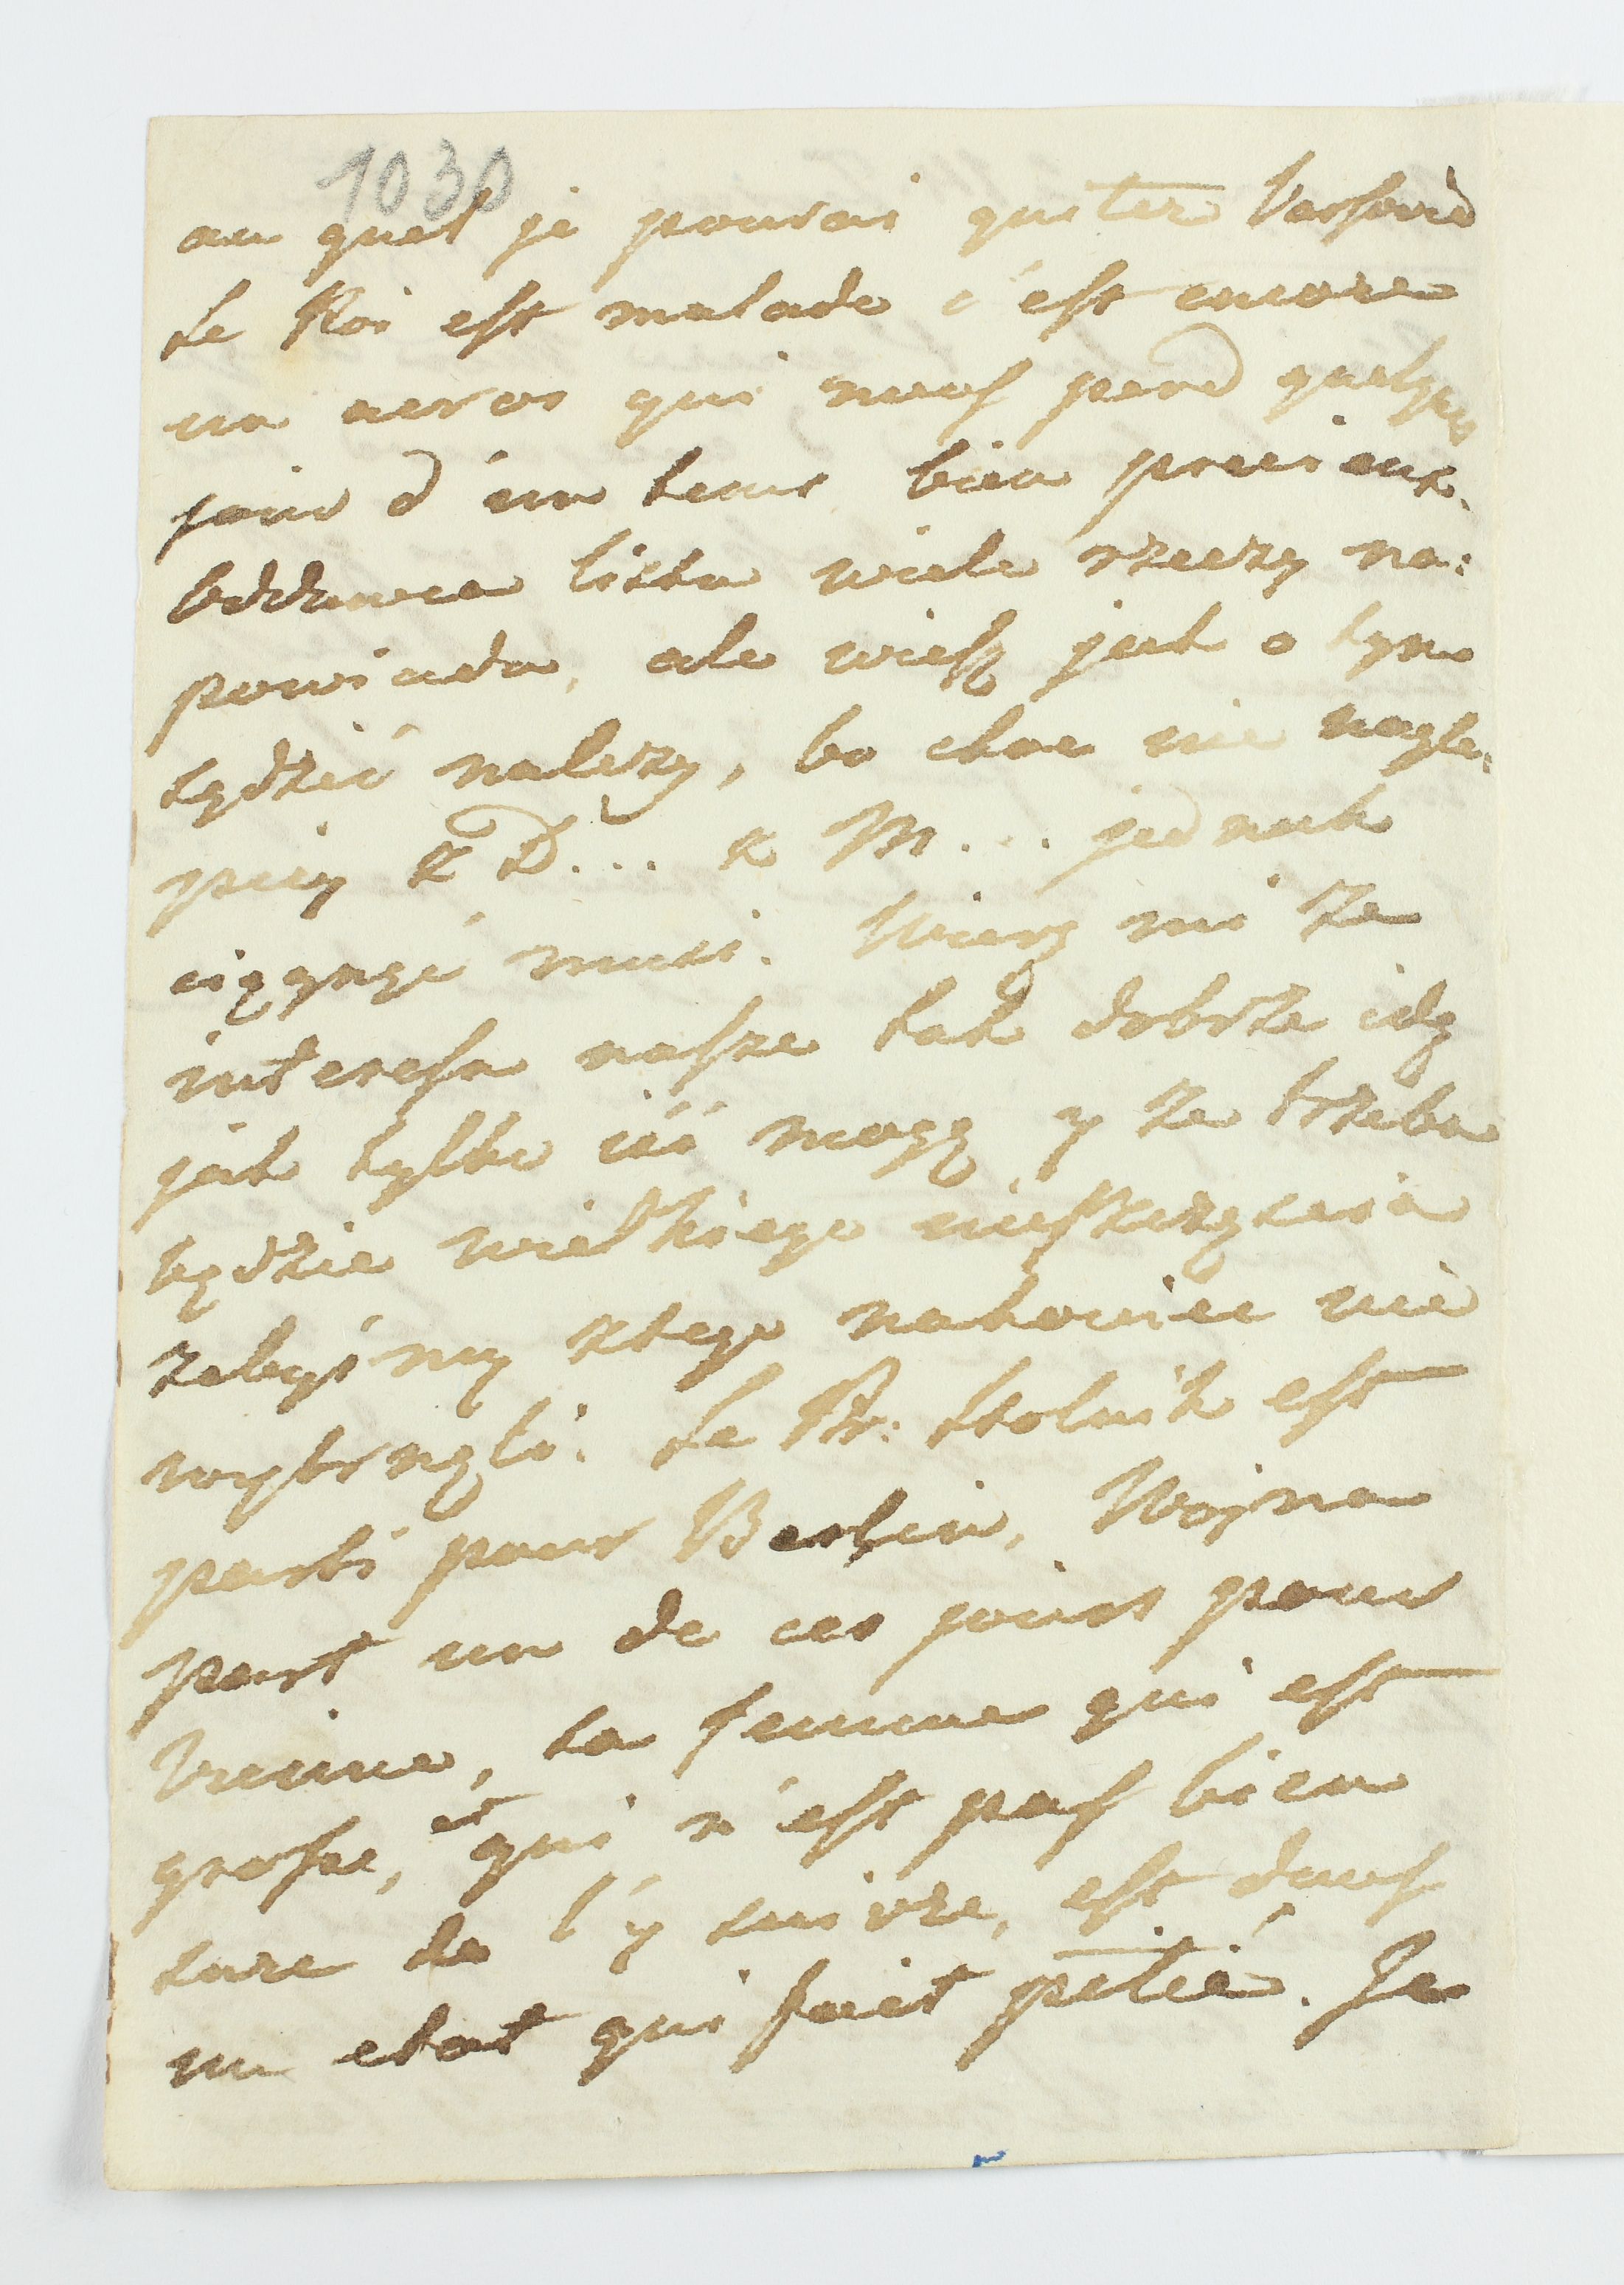 1030
au quel je pourai quiter Varsovie
Le Roi est malade c'est encore
un acroi qui nous perd quelques
jour d'un tems bien precieux.
Oddawca listu wiele rzeczy na:
powiada, ale wiesz jak o tym
sądzić należy, bo choc nie nagle:
piey z D... z M... jednak
ciągnąć musi. Wierz mi że
interesa nasze tak dobrze idą
jak tylko iść mogą y że trzeba
będzie wielkiego nieszczęścia
żebyśmy ztego nakoniec nie
wybrnęli. Le Pr: Stolnik est
parti pour Berlin, Wojna
part un de ces jours pour
Vienne, sa femme qui est
grosse, et qui n'est pas bien
sure de l'y suivre, est dans
un etat qui fait pitié. Je